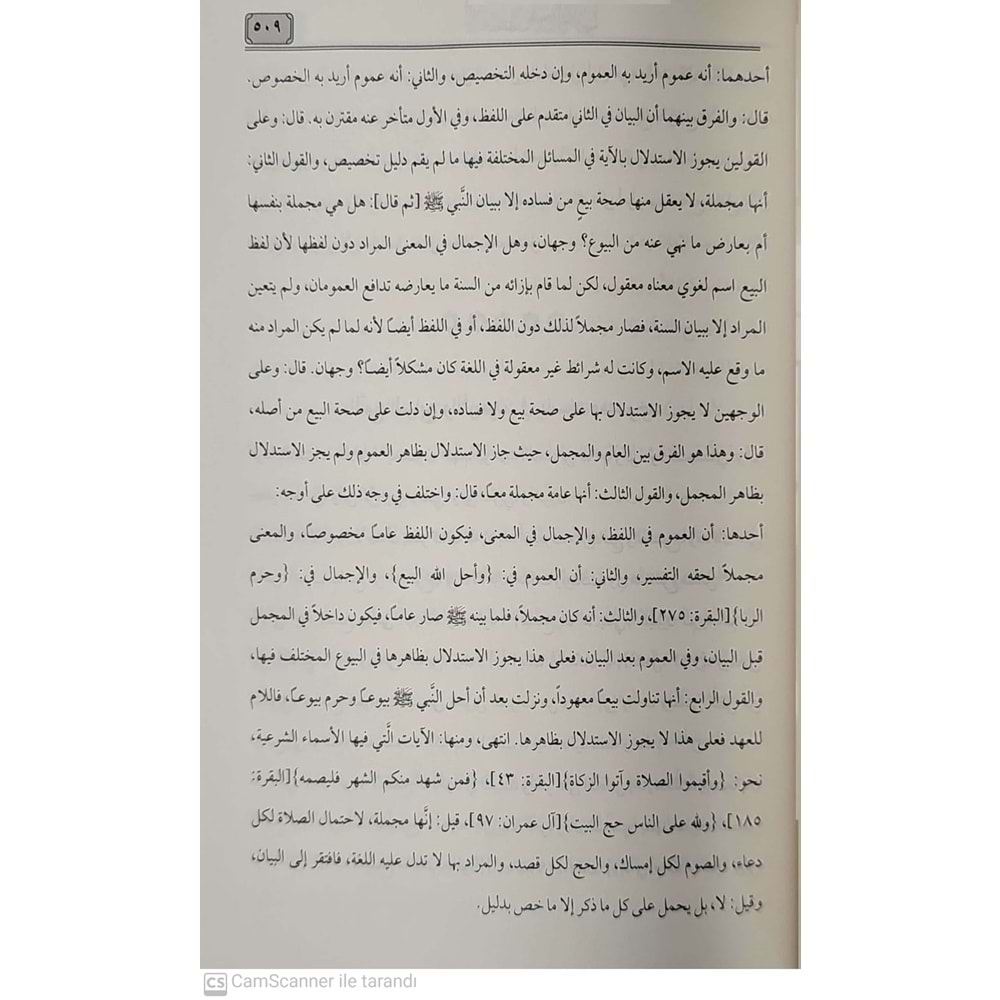 ٥٠٩
أحدهما: أنه عموم أريد به العموم، وإن دخله التخصيص، والثاني: أنه عموم أريد به الخصوص.
قال: والفرق بينهما أن البيان في الثاني متقدم على اللفظ، وفي الأول متأخر عنه مقترن به. قال: وعلى
القولين يجوز الاستدلال بالآية في المسائل المختلفة فيها ما لم يقم دليل تخصيص، والقول الثاني:
أنها مجملة، لا يعقل منها صحة بيع من فساده إلا ببيان النَّبي ﷺ [ثم قال]: هل هي مجملة بنفسها
أم بعارض ما نهي عنه من البيوع؟ وجهان، وهل الإجمال في المعنى المراد دون لفظها لأن لفظ
البيع اسم لغوي معناه معقول، لكن لما قام بإزائه من السنة ما يعارضه تدافع العمومان، ولم يتعين
المراد إلا ببيان السنة، فصار مجملاً لذلك دون اللفظ، أو في اللفظ أيضاً لأنه لما لم يكن المراد منه
ما وقع عليه الاسم، وكانت له شرائط غير معقولة في اللغة كان مشكلاً أيضاً؟ وجهان. قال: وعلى
الوجهين لا يجوز الاستدلال بها على صحة بيع ولا فساده، وإن دلت على صحة البيع من أصله،
قال: وهذا هو الفرق بين العام والمجمل، حيث جاز الاستدلال بظاهر العموم ولم يجز الاستدلال
بظاهر المجمل، والقول الثالث: أنها عامة مجملة معاً، قال: واختلف في وجه ذلك على أوجه:
أحدها: أن العموم في اللفظ، والإجمال في المعنى، فيكون اللفظ عاماً مخصوصاً، والمعنى
مجملاً لحقه التفسير، والثاني: أن العموم في: {وأحل الله البيع}، والإجمال في: {وحرم
الربا}[البقرة: ٢٧٥]، والثالث: أنه كان مجملاً، فلما بينه ﷺ صار عاماً، فيكون داخلاً في المجمل
قبل البيان، وفي العموم بعد البيان، فعلى هذا يجوز الاستدلال بظاهرها في البيوع المختلف فيها،
والقول الرابع: أنها تناولت بيعاً معهوداً، ونزلت بعد أن أحل النَّبي ﷺ بيوعاً وحرم بيوعاً، فاللام
للعهد فعلى هذا لا يجوز الاستدلال بظاهرها. انتهى، ومنها: الآيات الَّتي فيها الأسماء الشرعية،
نحو: {وأقيموا الصلاة وآتوا الزكاة}[البقرة: ٤٣]، {فمن شهد منكم الشهر فليصمه}[البقرة:
١٨٥]، {ولله على الناس حج البيت}[آل عمران: ٩٧]، قيل: إنَّها مجملة، لاحتمال الصلاة لكل
دعاء، والصوم لكل إمساك، والحج لكل قصد، والمراد بها لا تدل عليه اللغة، فافتقر إلى البيان،
وقيل: لا، بل يحمل على كل ما ذكر إلا ما خص بدليل.
CS CamScanner ile tarandı